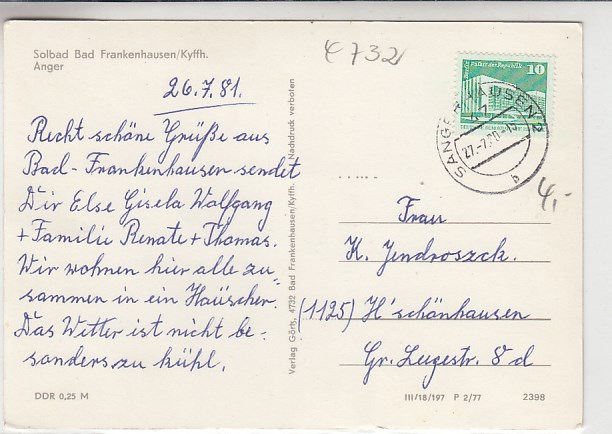 Solbad Bad Frankenhausen/Kyffh.
Anger
4732
26.7.81.
Recht schöne Grüße aus
Bad-Frankenhausen sendet
Dir Else Gisela Wolfgang
+ Familie Renate + Thomas.
Wir wohnen hier alle zu-
sammen in ein Häuschen.
Das Wetter ist nicht be-
sonders zu kühl.
DDR 0,25 M
Verlag Görh, 4732 Bad Frankenhausen/Kyffh. Nachdruck verboten
Palast der Republik
10
SANGERHAUSEN 2
47
27.-7.80
b
4,-
Frau
K. Jendroszck.
(1125) H'schönhausen
Gr. Leegestr. 8 d
III/18/197 P 2/77 2398